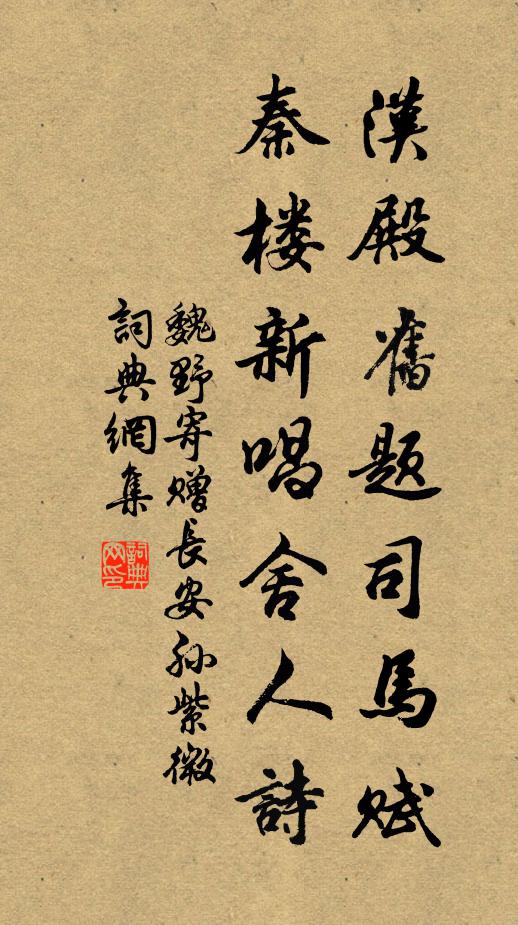 漢殿舊題司馬赋
秦楼新唱舍人詩
魏野寄赠長安孙紫微
詞典網集
詞典网印